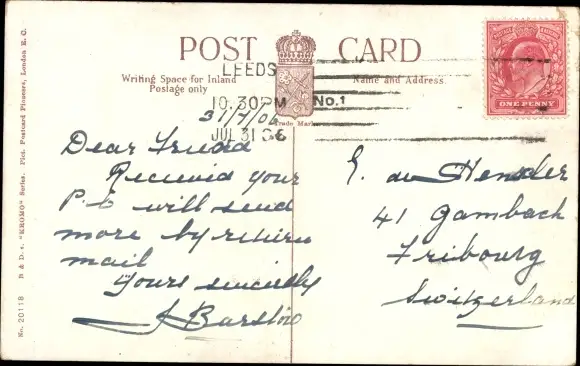 POST CARD
Writing Space for Inland
Postage only
Name and Address.
Trade Mark
LEEDS
10.30PM
JUL 31 06
No.1
ONE PENNY
31/7/06
Dear Friend
Received your
P.C will send
more by return
mail
Yours sincerely
J Barstow
E. de Hensler
41 Gambach
Fribourg
Switzerland
No. 20118 B & D. s. "KROMO" Series. Pict. Postcard Pioneers, London E. C.